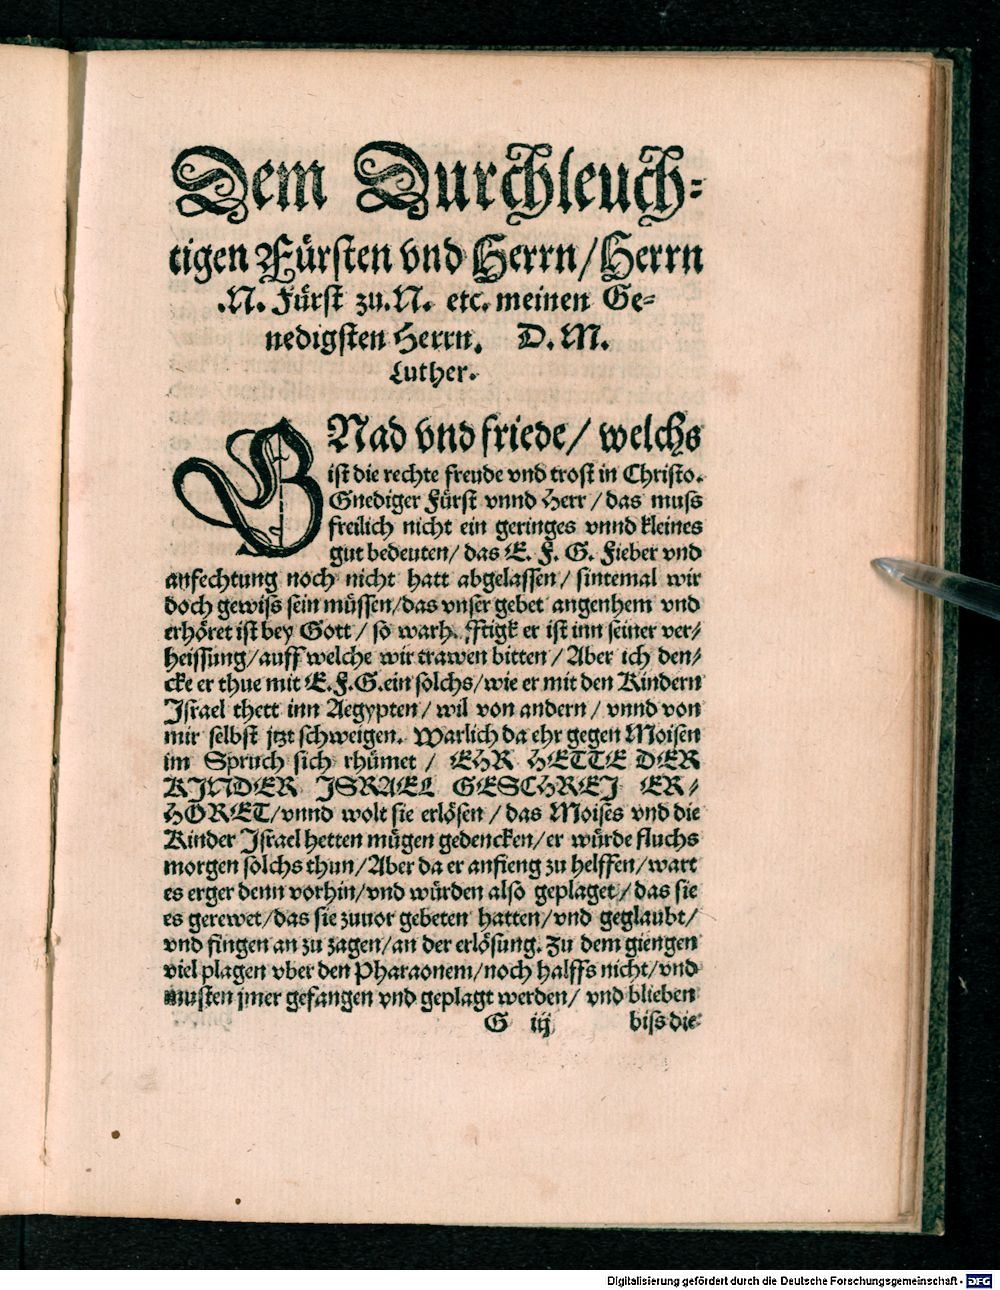 Dem Durchleuch-
tigen Fürsten vnd Herrn/Herrn
.N. Fürst zu.N. etc. meinen Ge-
nedigsten Herrn. D. M.
Luther.
GNad vnd friede/ welchs
ist die rechte freude vnd trost in Christo.
Gnediger Fürst vnnd Herr/das muss
freilich nicht ein geringes vnnd kleines
gut bedeuten/das E. F. G. Fieber vnd
anfechtung noch nicht hatt abgelassen/ sintemal wir
doch gewiss sein müssen/das vnser gebet angenhem vnd
erhöret ist bey Gott/ so warh. fftigk er ist inn seiner ver-
heissung/auff welche wir trawen bitten/Aber ich den-
cke er thue mit E.F.G.ein solchs/wie er mit den Kindern
Israel thett inn Aegypten/ wil von andern/ vnnd von
mir selbst jtzt schweigen. Warlich da ehr gegen Moisen
im Spruch sich rhümet/ EHR HETTE DER
KINDER ISRAEL GESCHREI ER-
HORET/vnnd wolt sie erlösen/ das Moises vnd die
Kinder Israel hetten mügen gedencken/er würde fluchs
morgen solchs thun/Aber da er anfieng zu helffen/wart
es erger denn vorhin/vnd würden also geplaget/das sie
es gerewet/das sie zuuor gebeten hatten/vnd geglaubt/
vnd fingen an zu zagen/an der erlösung. Zu dem giengen
viel plagen vber den Pharaonem/noch halffs nicht/vnd
musten jmer gefangen vnd geplagt werden/ vnd blieben
G iij biss die
Digitalisierung gefördert durch die Deutsche Forschungsgemeinschaft - DFG